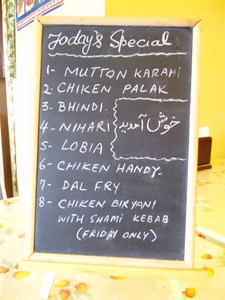 Today's Special
1- MUTTON KARAHI
2- CHIKEN PALAK
3- BHINDI.
خوش آمدید
4- NIHARI
5- LOBIA
6- CHIKEN HANDY.
7- DAL FRY
8- CHIKEN BIRYANI
WITH SHAMI KEBAB
(FRIDAY ONLY)